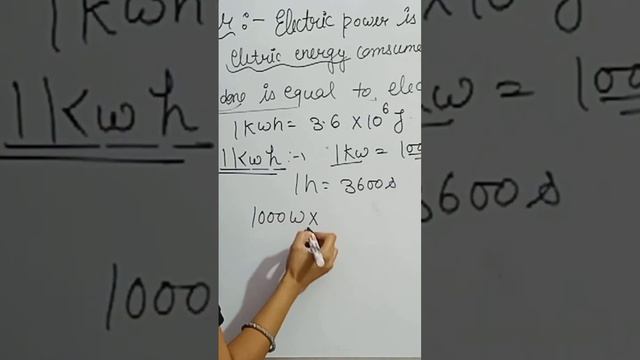 r :- Electric power is
eletric energy consume
done is equal to elec
1 kwh = 3.6 × 10⁶ J
1 Kwh :-, 1 kw = 100
1h = 3600 s
1000 W ×